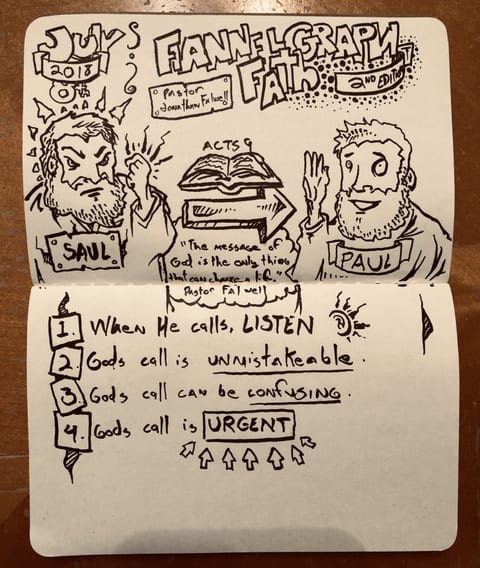 July
2018
8th
FANNELGRAPH
FAITH
2ND EDITION
Pastor
Jonathan Falwell
ACTS 9
SAUL
"The message of
God is the only thing
that can change a life."
Pastor Falwell
PAUL
1. When He calls, LISTEN
2. Gods call is UNMISTAKEABLE.
3. Gods call can be confusing.
4. Gods call is URGENT